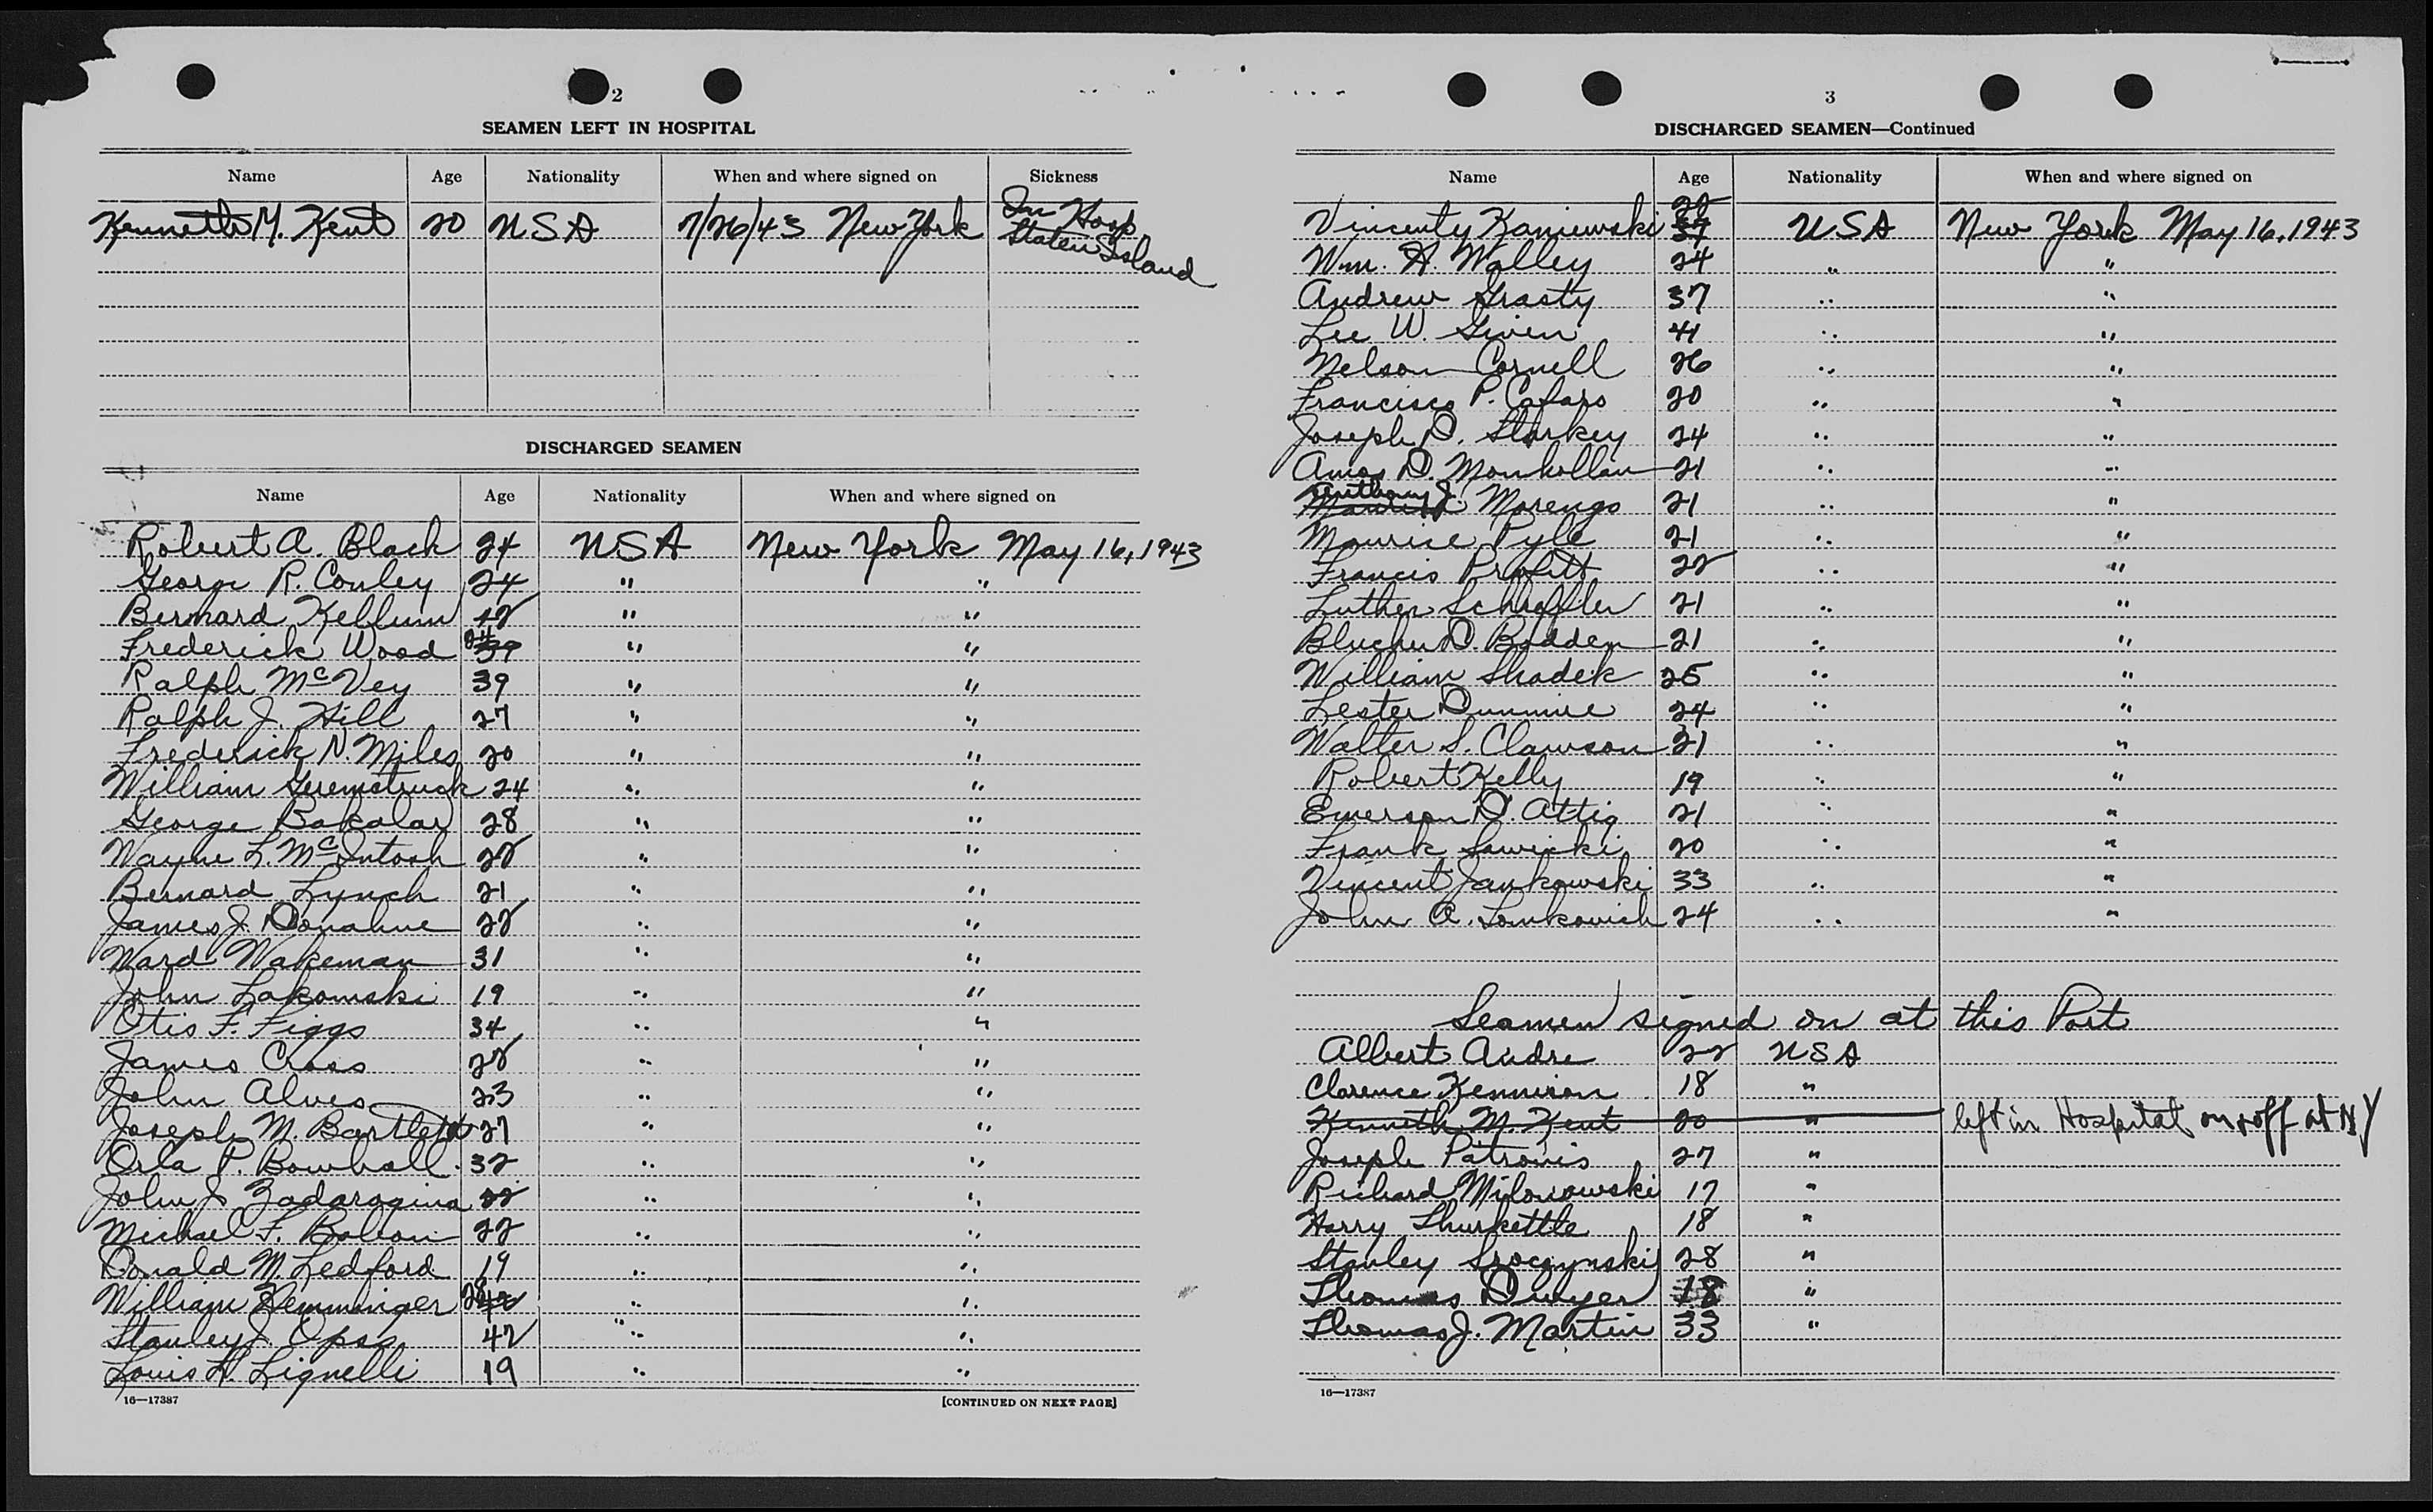 2
SEAMEN LEFT IN HOSPITAL
Name Age Nationality When and where signed on Sickness
Kenneth M. Kent 20 USA 7/26/43 New York In Hosp Staten Island
DISCHARGED SEAMEN
Name Age Nationality When and where signed on
Robert A. Black 24 USA New York May 16, 1943
George R. Conley 24 " "
Bernard Kellum 42 " "
Frederick Wood 24 39 " "
Ralph McVey 39 " "
Ralph J. Hill 27 " "
Frederick N. Miles 20 " "
William 24 " "
George Bakalar 28 " "
Wayne L. McIntosh 22 " "
Bernard Lynch 21 " "
James J. Donahue 22 " "
Ward Wakeman 31 " "
John Lakomski 19 " "
Otis F. Figgs 34 " "
James Cross 22 " "
John Alves 23 " "
Joseph M. Bartlett 27 " "
Orla P. Bowhall 32 " "
John J. 22 " "
Michael F. 22 " "
Donald M. Ledford 19 " "
William Hemminger 28 42 " "
Stanley J. Opss 42 " "
Louis A. Lignelli 19 " "
16—17387
[CONTINUED ON NEXT PAGE]
3
DISCHARGED SEAMEN—Continued
Name Age Nationality When and where signed on
Vincenty Kaniewski 22 37 USA New York May 16, 1943
Wm. H. Walley 24 " "
Andrew Grasty 37 " "
Lee W. Given 41 " "
Nelson Cornell 26 " "
Francisco P. Cafaro 20 " "
Joseph D. Starkey 24 " "
Amos D. Monhollan 21 " "
Anthony J. Marengo 21 " "
Maurice Pyle 21 " "
Francis Profitt 22 " "
Luther Schreffler 21 " "
Blucher D. Bodden 21 " "
William Shadek 25 " "
Lester Dunmire 24 " "
Walter S. Clawson 21 " "
Robert Kelly 19 " "
Emerson D. Attig 21 " "
Frank Sawicki 20 " "
Vincent Jankowski 33 " "
John A. Tomkovich 24 " "
Seamen signed on at this Port
Albert Andre 22 USA
Clarence Kennison 18 "
Kenneth M. Kent 20 " left in Hospital on & off at NY
Joseph Patronis 27 "
Richard Milonowski 17 "
Harry Thurkettle 18 "
Stanley Sroczynski 28 "
Thomas Dwyer 18 "
Thomas J. Martin 33 "
16—17387